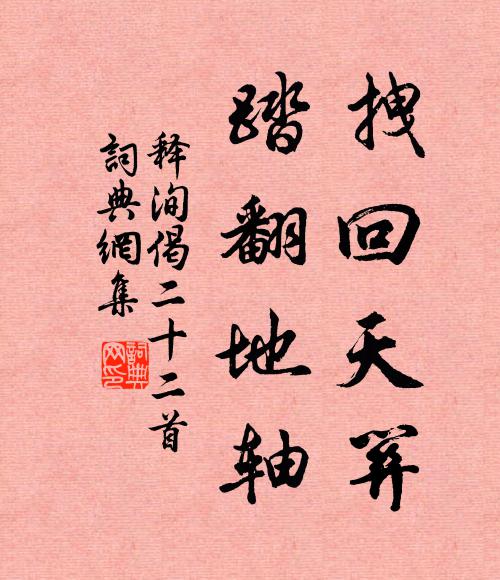 拽回天关
踏翻地轴
释洵偈二十二首
詞典網集
詞典
网印